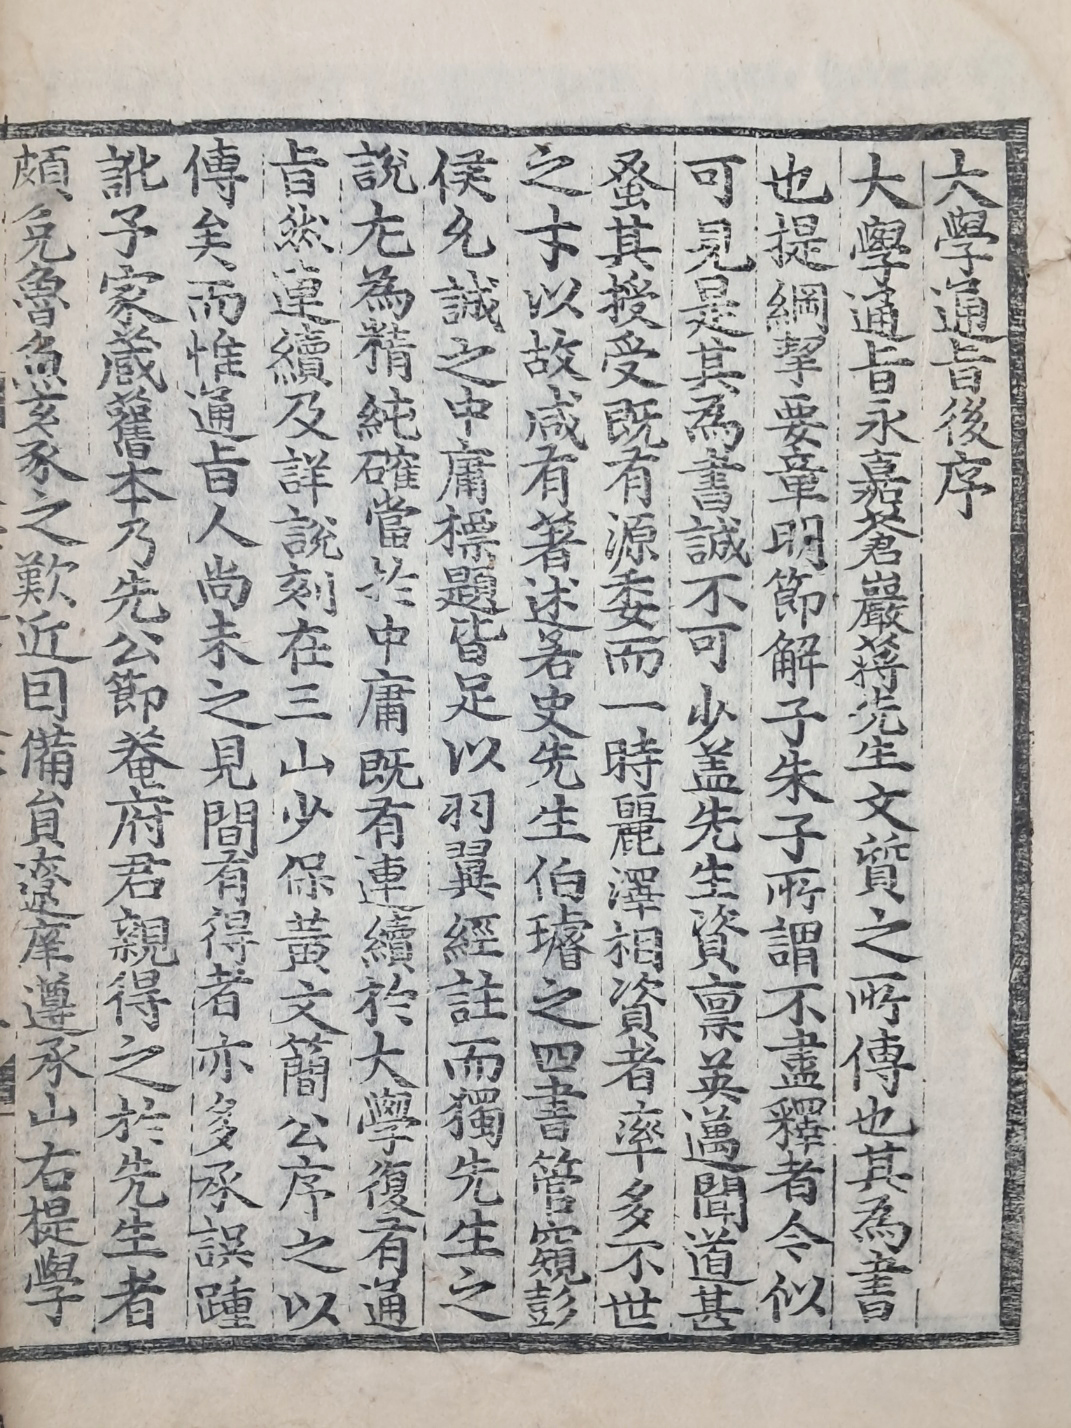 大學通旨後序
大學通旨永嘉蒼巖蔣先生文質之所傳也其為書
也提綱挈要章明節解子朱子所謂不盡釋者今似
可見是其為書誠不可少盖先生資禀英邁聞道甚
蚤其授受既有源委而一時麗澤相資者率多不世
之才以故咸有著述若史先生伯璿之四書管窺彭
侯允誠之中庸標題皆足以羽翼經註而獨先生之
說尤為精純確當於中庸既有連續於大學復有通
旨然連續及詳說刻在三山少保黃文簡公序之以
傳矣而惟通旨人尚未之見間有得者亦多承誤踵
訛予家藏舊本乃先公節菴府君親得之於先生者
頗免魯魚亥豕之歎近囙備員遼庠遵承山右提學